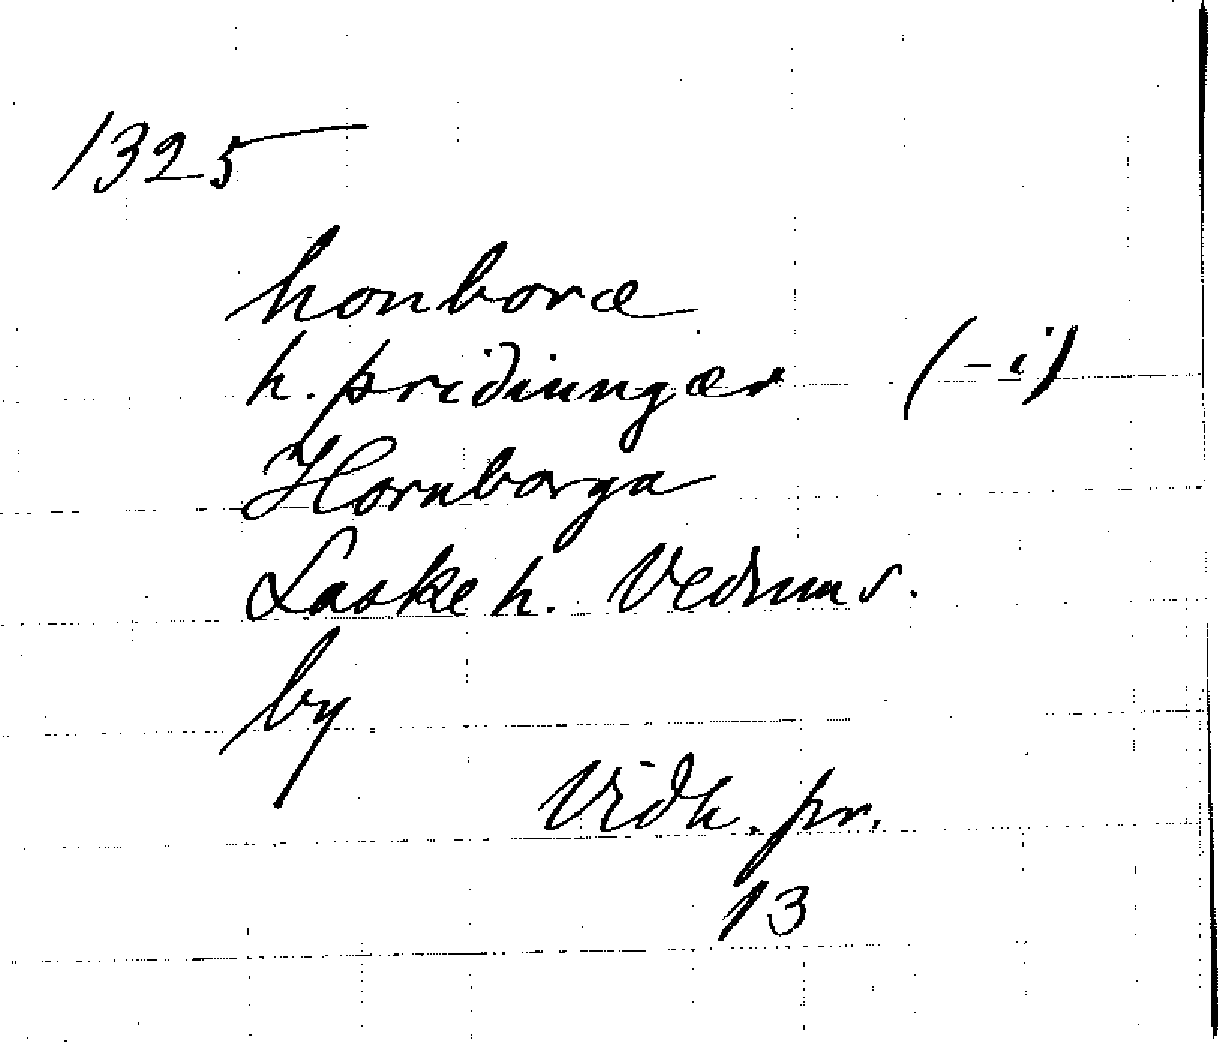 1325
honboræ
h. þriðiungær (-i)
Hornborga
Laske h. Vedums.
by
Vidh. pr.
13